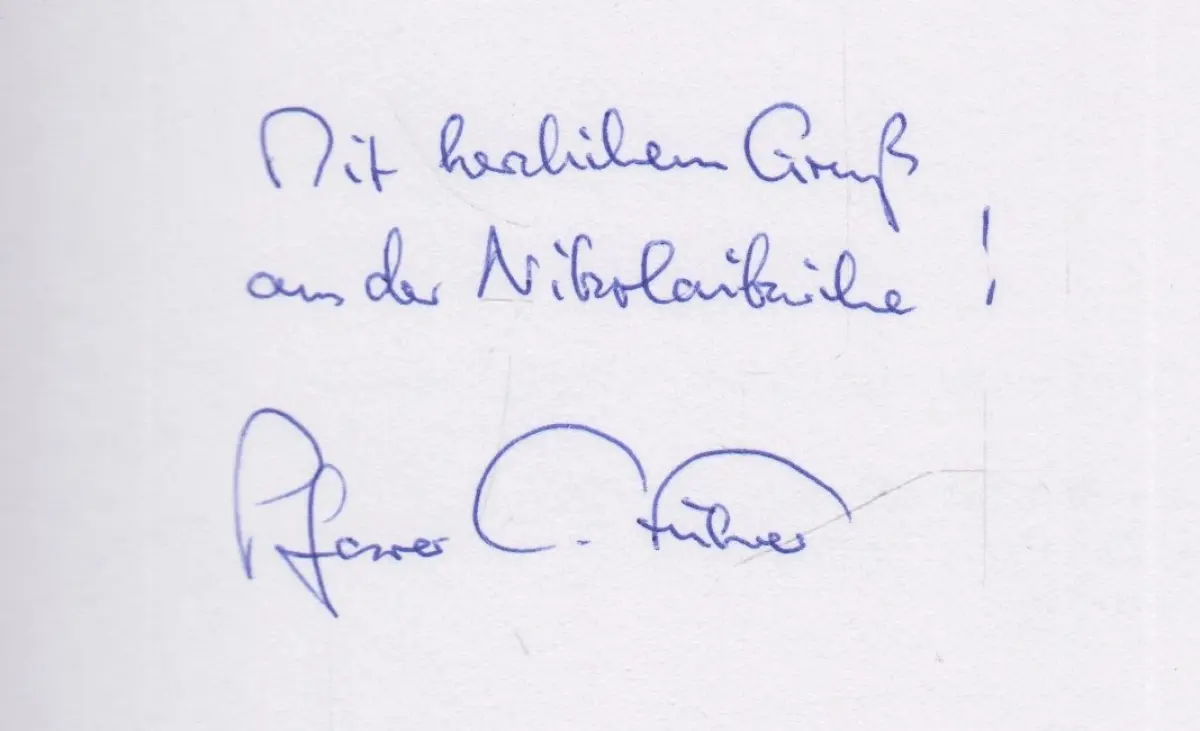 Mit herzlichem Gruß
aus der Nikolaikirche !
Pfarrer C. Führer